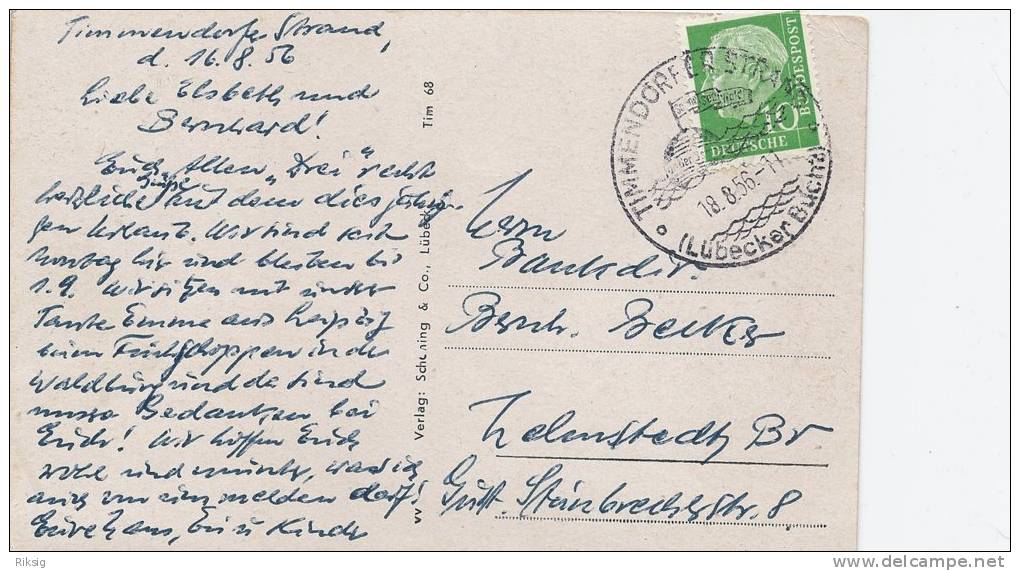 Timmendorfer Strand,
d. 16.8.56
Liebe Elsbeth und
Bernhard!
Euch Allen "Drei" recht
herzliche Grüße aus dem diesjähri-
gen Urlaub. Wir sind seit
Montag hier und bleiben bis
1.9. Wir sitzen mit unser
Tante Emma aus Leipzig
beim Frühschoppen in der
Waldburg und da sind
unsre Gedanken bei
Euch! Wir hoffen Euch
wohl und munter, was ich
auch von uns melden darf!
Eure Hans, u Kinder
Verlag: Schöning & Co., Lübeck
Tim 68
DEUTSCHE BUNDESPOST
10
TIMMENDORFER STRAND
18.8.56.-11
(Lübecker Bucht)
Herrn
Bankdir.
Bernh. Becker
Helmstedt Br
Gust. Steinbrecherstr. 8
Riksig
www.delcampe.net